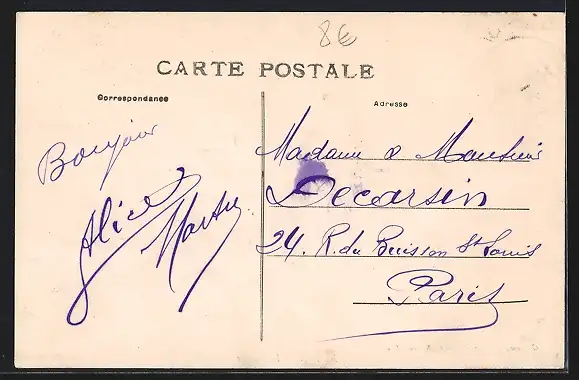 8€
CARTE POSTALE
Correspondance
Adresse
Bonjour
Alice
Madame & Monsieur
Decarsin
24. R. du Buisson St Louis
Paris